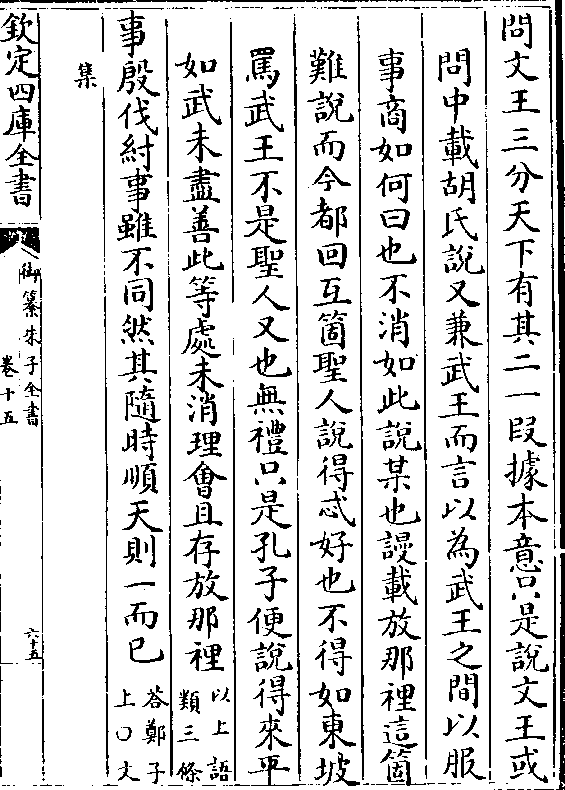 問文王三分天下有其二一段據本意只是說文王或
問中載胡氏說又兼武王而言以為武王之間以服
事商如何曰也不消如此說某也謾載放那裡這箇
難說而今都回互箇聖人說得忒好也不得如東坡
罵武王不是聖人又也無禮只是孔子便說得來平
如武未盡善此等處未消理會且存放那裡以上語
類三條
事殷伐紂事雖不同然其隨時順天則一而已答鄭子
上○文
集
欽定四庫全書
御纂朱子全書
卷十五
六十五